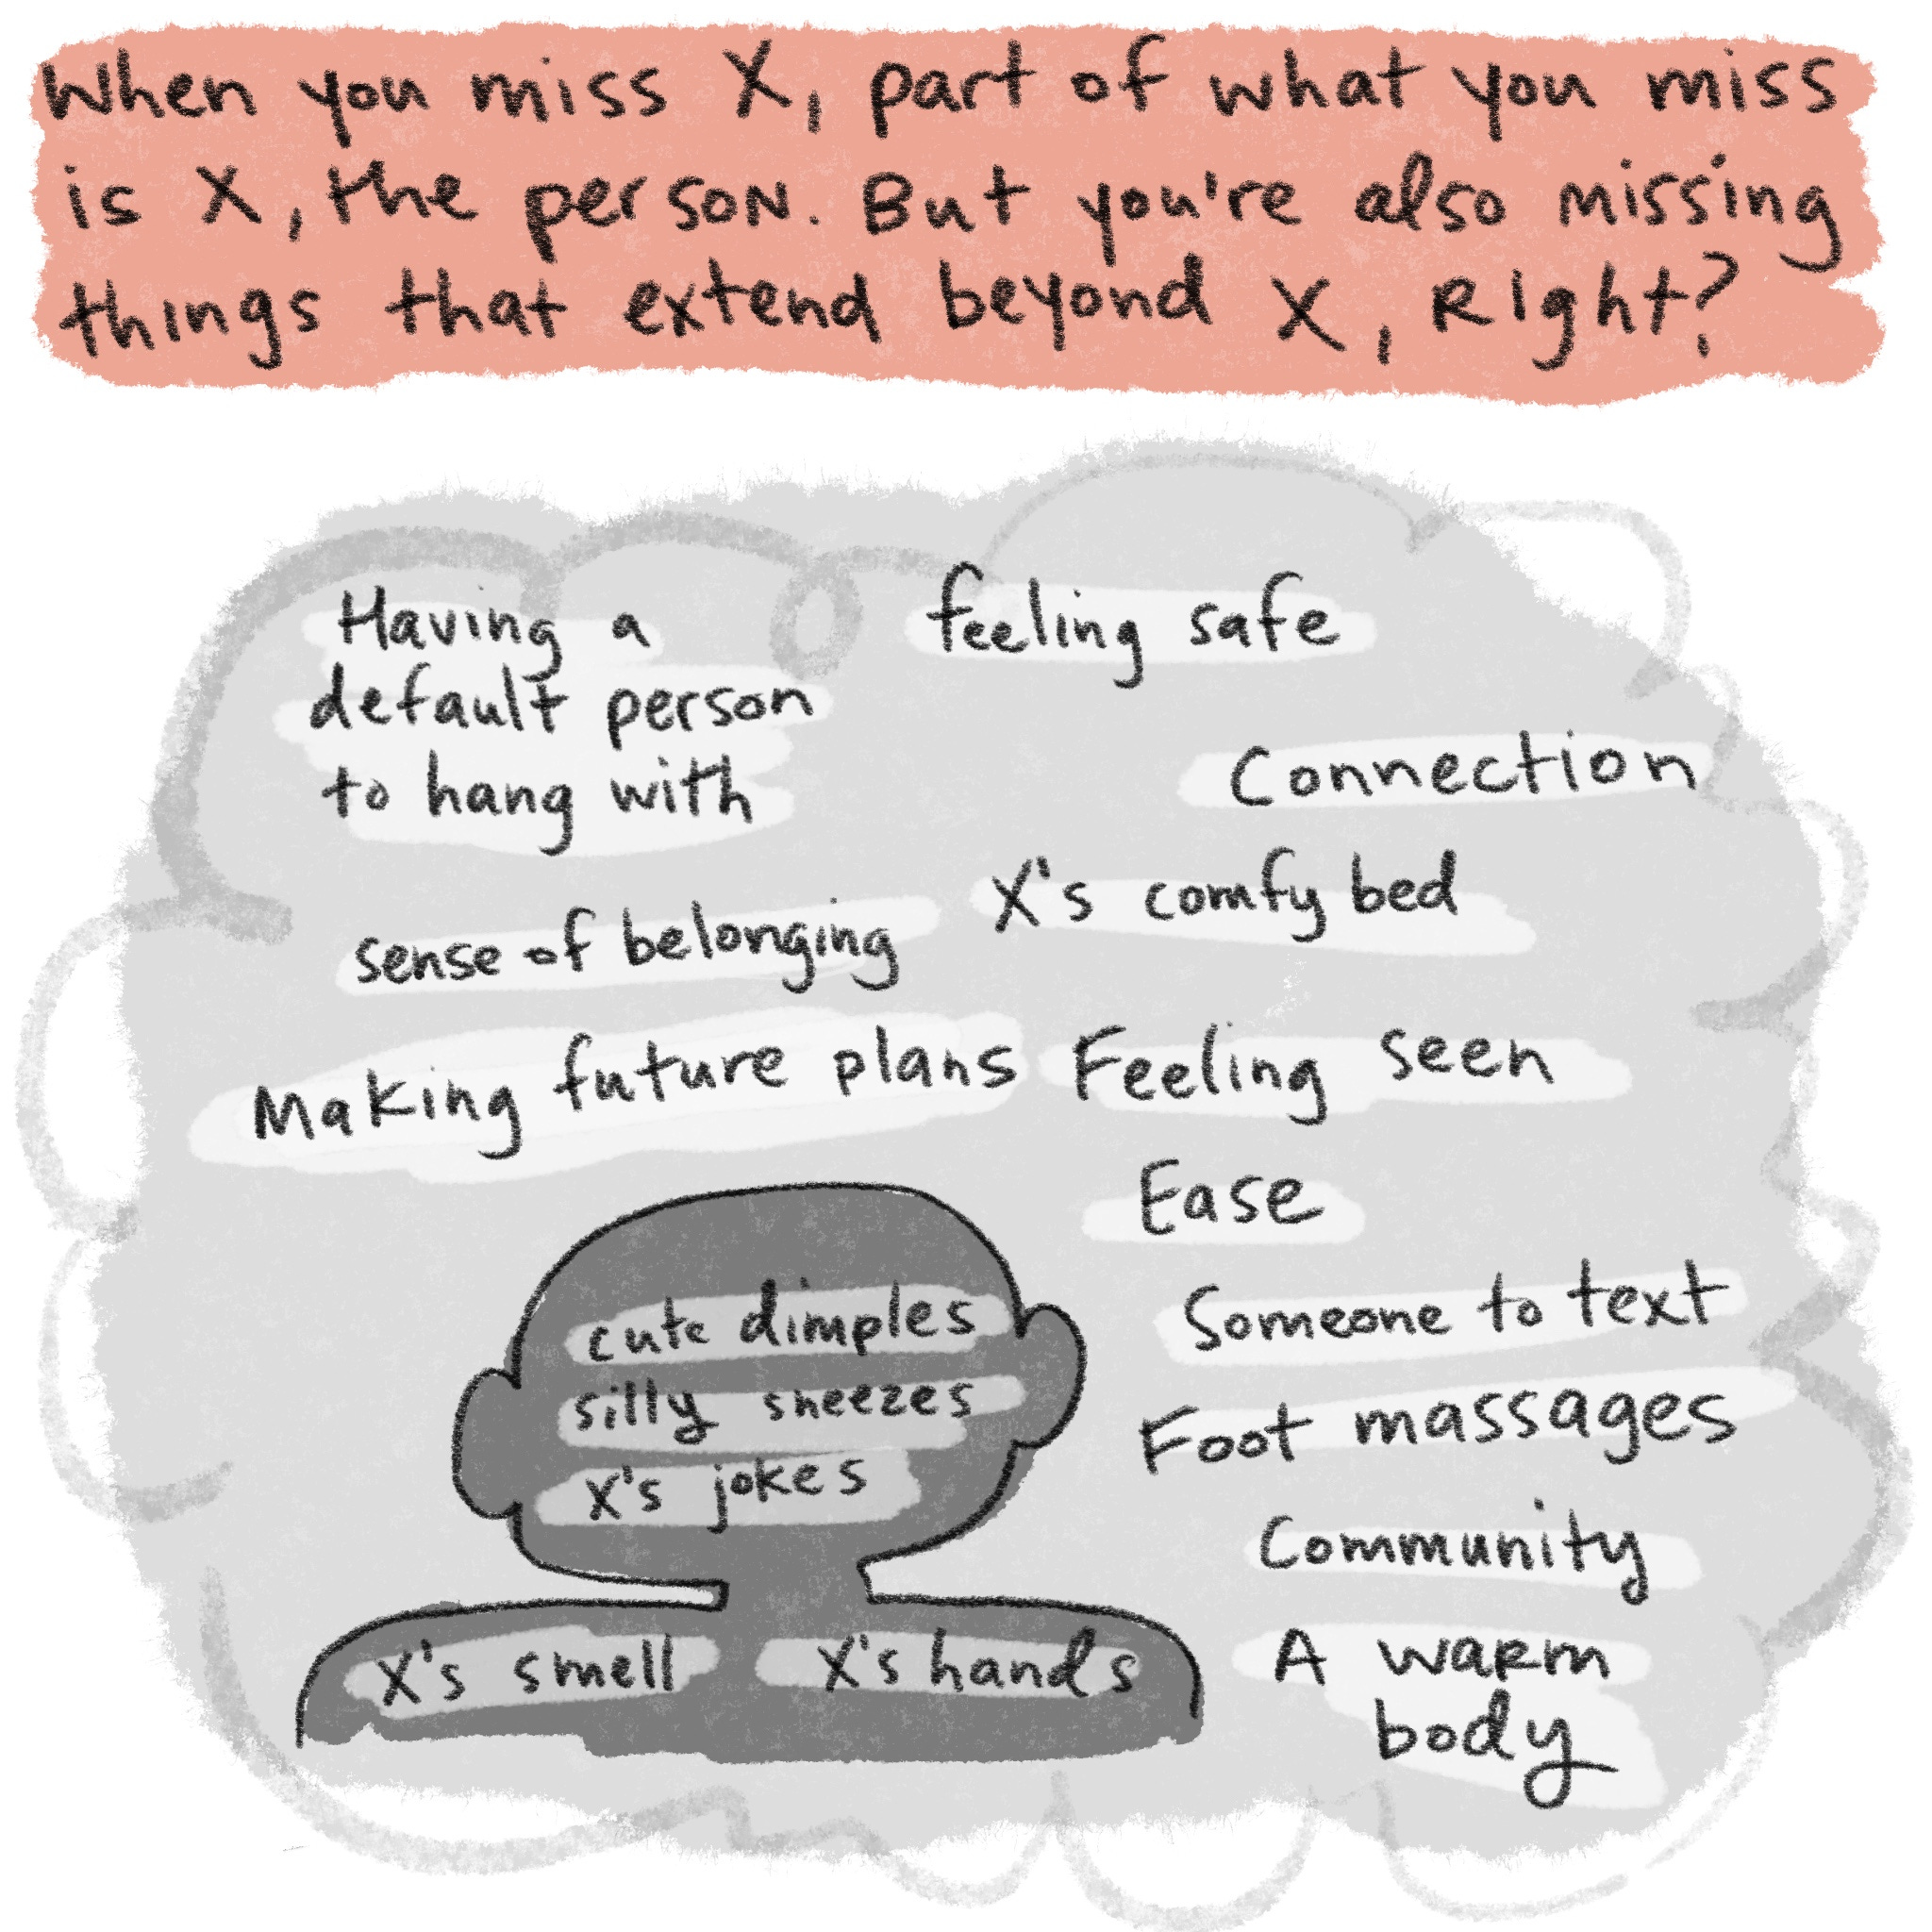 When you miss X, part of what you miss
is X, the person. But you're also missing
things that extend beyond X, Right?
Having a
default person
to hang with
feeling safe
Connection
X's comfy bed
sense of belonging
Making future plans
Feeling seen
Ease
cute dimples
silly sneezes
X's jokes
X's smell
X's hands
Someone to text
Foot massages
Community
A warm
body